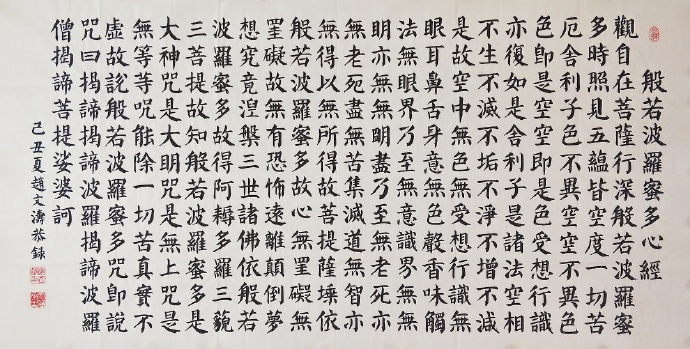 般若波羅蜜多心經
觀自在菩薩行深般若波羅蜜
多時照見五蘊皆空度一切苦
厄舍利子色不異空空不異色
色即是空空即是色受想行識
亦復如是舍利子是諸法空相
不生不滅不垢不淨不增不減
是故空中無色無受想行識無
眼耳鼻舌身意無色聲香味觸
法無眼界乃至無意識界無無
明亦無無明盡乃至無老死亦
無老死盡無苦集滅道無智亦
無得以無所得故菩提薩埵依
般若波羅蜜多故心無罣礙無
罣礙故無有恐怖遠離顛倒夢
想究竟涅槃三世諸佛依般若
波羅蜜多故得阿耨多羅三藐
三菩提故知般若波羅蜜多是
大神咒是大明咒是無上咒是
無等等咒能除一切苦真實不
虛故說般若波羅蜜多咒即說
咒曰揭諦揭諦波羅揭諦波羅
僧揭諦菩提娑婆訶
己丑夏趙文濤恭録